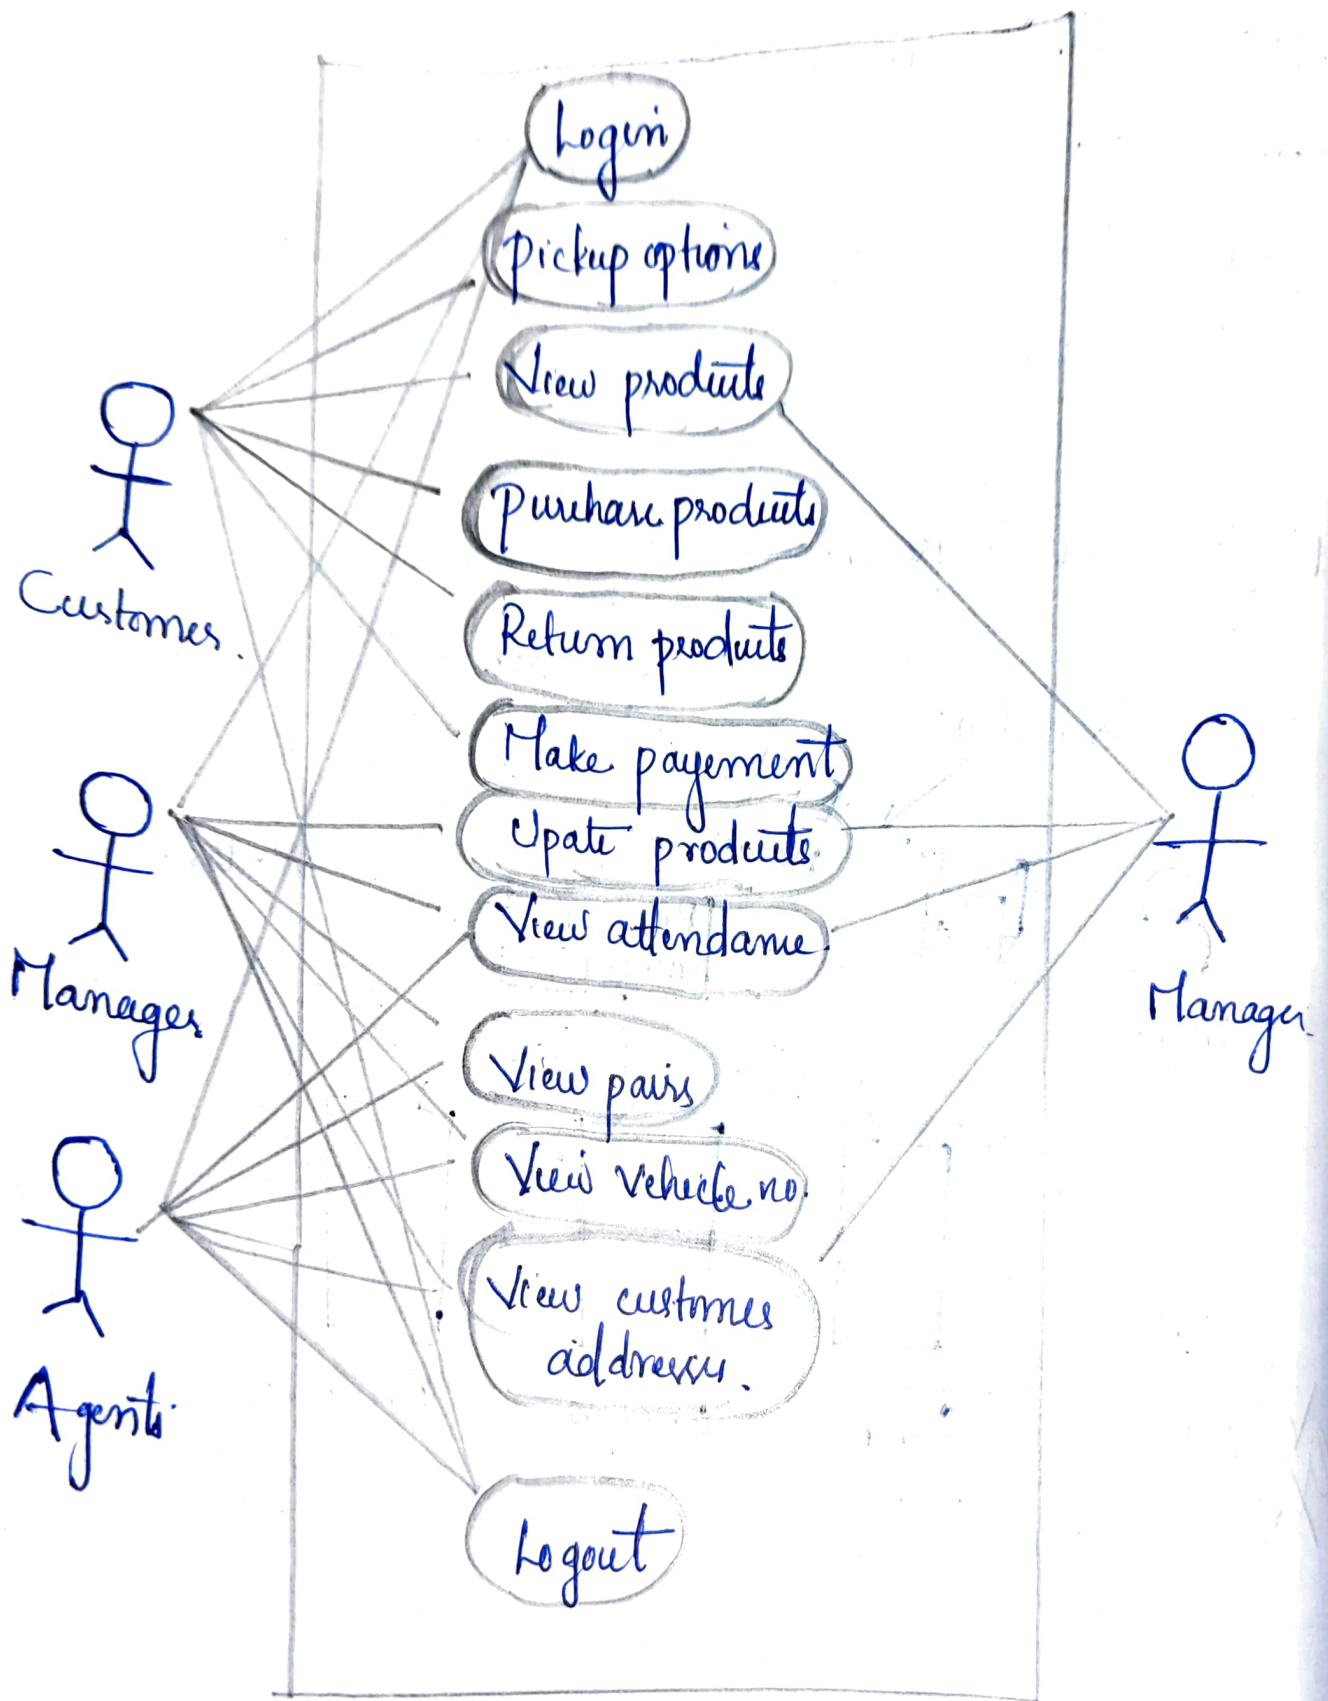 Login
Pickup options
View products
Purchase products
Return products
Make payement
Upate products
View attendance
View pairs
View vehicle no.
View customer
addresses.
Logout
Customer.
Manager
Agents
Manager